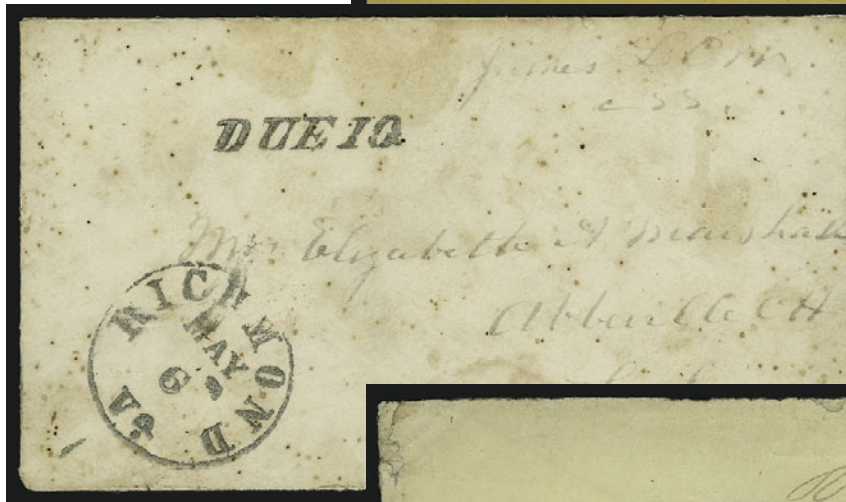 James L Orr
DUE 10
Mrs Elizabeth A Marshall
Abbeville CH
RICHMOND
MAY
6
Va